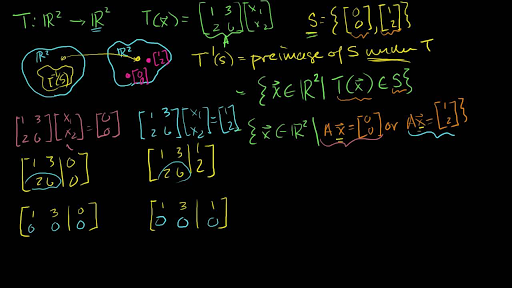 T: ℝ² → ℝ² T(x⃗) = [1 3; 2 6] [x₁; x₂] S = {[0; 0], [1; 2]}
ℝ² ℝ² [1; 2] [0; 0] T⁻¹(S)
T⁻¹(S) = preimage of S under T
= {x⃗ ∈ ℝ² | T(x⃗) ∈ S}
{x⃗ ∈ ℝ² | Ax⃗ = [0; 0] or Ax⃗ = [1; 2]}
[1 3; 2 6] [x₁; x₂] = [0; 0] [1 3; 2 6] [x₁; x₂] = [1; 2]
[1 3 | 0; 2 6 | 0] [1 3 | 1; 2 6 | 2]
[1 3 | 0; 0 0 | 0] [1 3 | 1; 0 0 | 0]